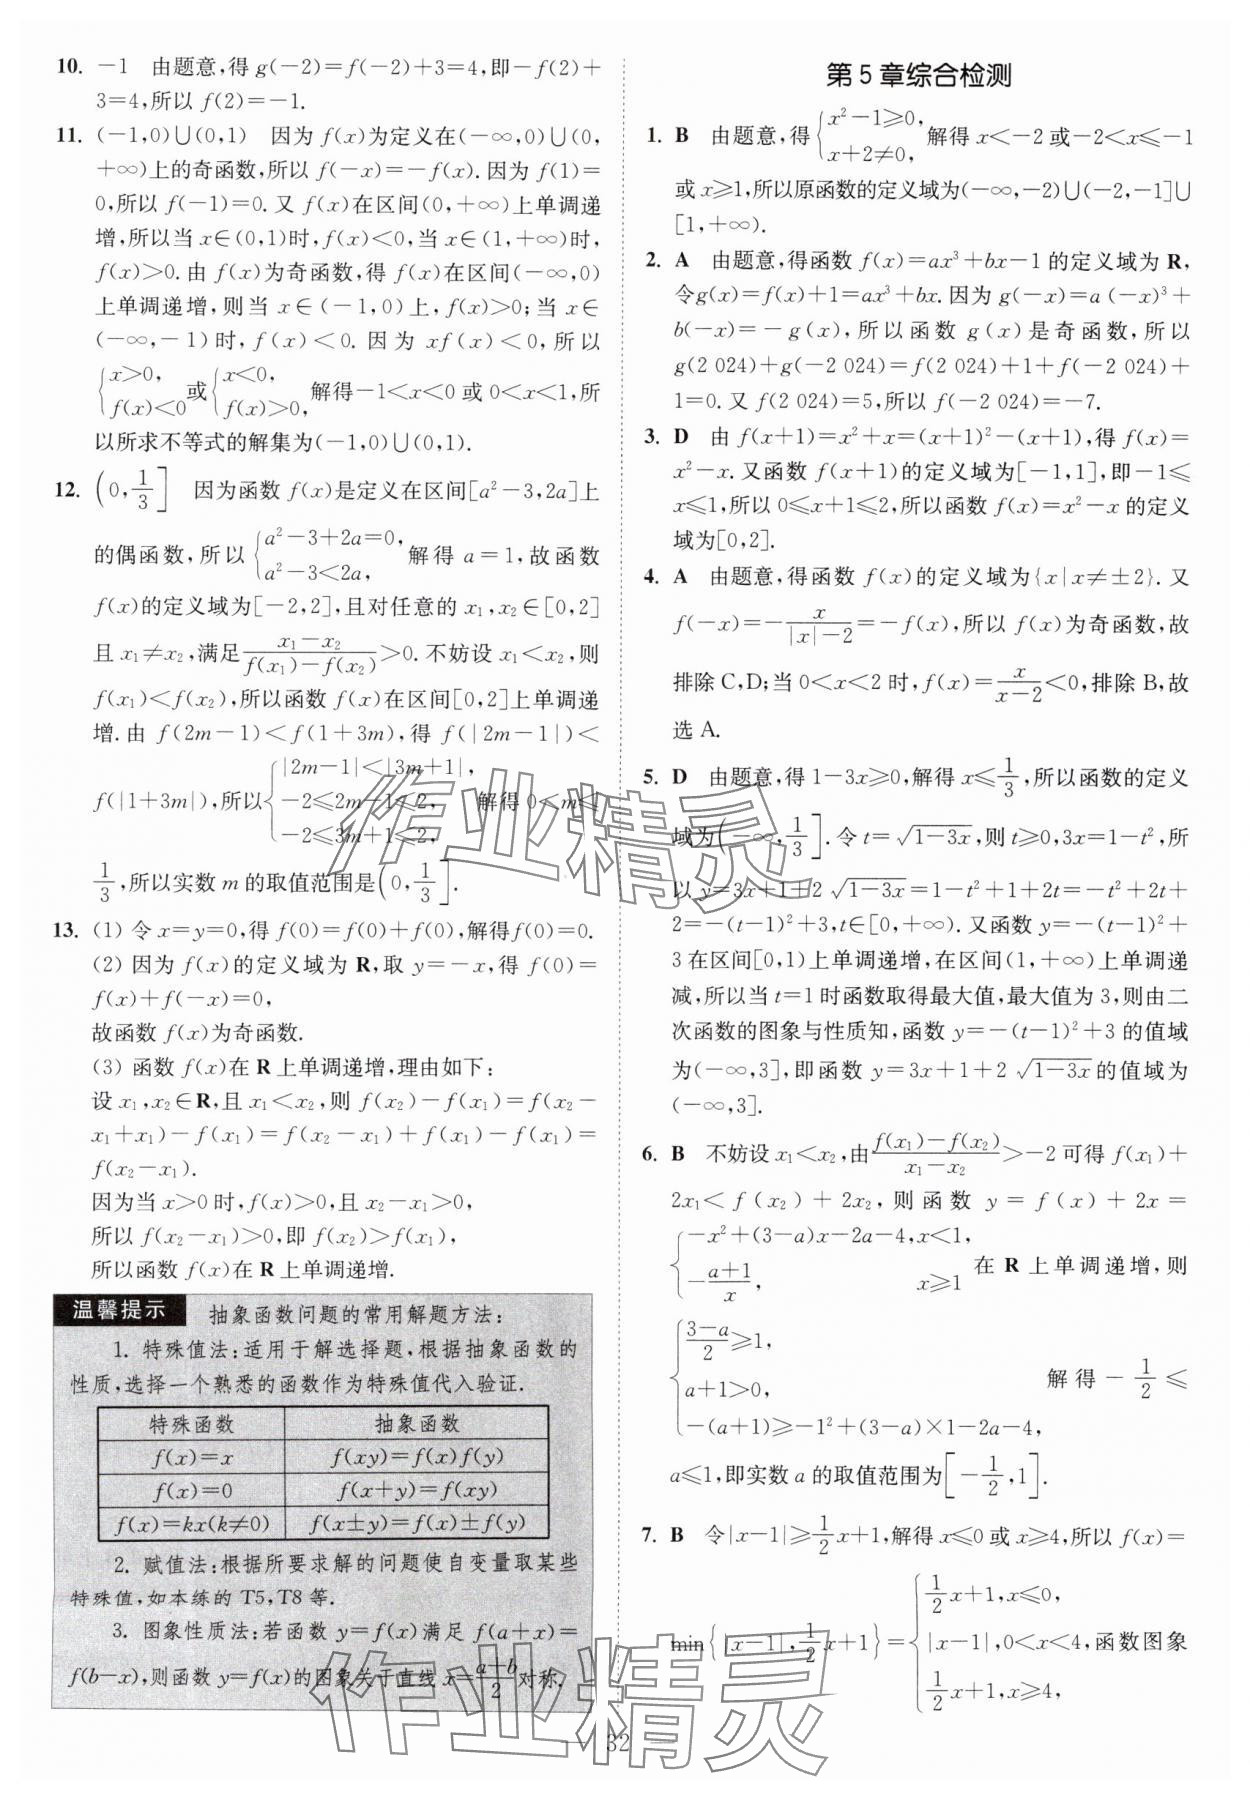 10. －1　由题意,得 g(－2)=f(－2)+3=4,即－f(2)+
3=4,所以 f(2)=－1.
11. (－1,0)∪(0,1)　因为 f(x)为定义在(－∞,0)∪(0,
+∞)上的奇函数,所以 f(－x)=－f(x).因为 f(1)=
0,所以 f(－1)=0.又 f(x)在区间(0,+∞)上单调递
增,所以当 x∈(0,1)时,f(x)<0,当 x∈(1,+∞)时,
f(x)>0.由 f(x)为奇函数,得 f(x)在区间(－∞,0)
上单调递增,则当 x∈(－1,0)上,f(x)>0;当 x∈
(－∞,－1)时,f(x)<0.因为 xf(x)<0,所以
{x>0, f(x)<0 或 {x<0, f(x)>0, 解得－1<x<0 或 0<x<1,所
以所求不等式的解集为(－1,0)∪(0,1).
12. (0,1/3]　因为函数 f(x)是定义在区间[a²－3,2a]上
的偶函数,所以 {a²－3+2a=0, a²－3<2a, 解得 a=1,故函数
f(x)的定义域为[－2,2],且对任意的 x₁,x₂∈[0,2]
且 x₁≠x₂,满足 (x₁－x₂)/(f(x₁)－f(x₂))>0.不妨设 x₁<x₂,则
f(x₁)<f(x₂),所以函数 f(x)在区间[0,2]上单调递
增.由 f(2m－1)<f(1+3m),得 f(|2m－1|)<
f(|1+3m|),所以 {|2m－1|<|3m+1|, －2≤2m－1≤2, －2≤3m+1≤2, 解得 0<m≤
1/3,所以实数 m 的取值范围是(0,1/3].
13. (1) 令 x=y=0,得 f(0)=f(0)+f(0),解得f(0)=0.
(2) 因为 f(x)的定义域为 R,取 y=－x,得 f(0)=
f(x)+f(－x)=0,
故函数 f(x)为奇函数.
(3) 函数 f(x)在 R 上单调递增,理由如下:
设 x₁,x₂∈R,且 x₁<x₂,则 f(x₂)－f(x₁)=f(x₂－
x₁+x₁)－f(x₁)=f(x₂－x₁)+f(x₁)－f(x₁)=
f(x₂－x₁).
因为当 x>0 时,f(x)>0,且 x₂－x₁>0,
所以 f(x₂－x₁)>0,即 f(x₂)>f(x₁),
所以函数 f(x)在 R 上单调递增.
温馨提示　抽象函数问题的常用解题方法:
1. 特殊值法:适用于解选择题,根据抽象函数的
性质,选择一个熟悉的函数作为特殊值代入验证.
特殊函数　抽象函数
f(x)=x　f(xy)=f(x)f(y)
f(x)=0　f(x+y)=f(xy)
f(x)=kx(k≠0)　f(x±y)=f(x)±f(y)
2. 赋值法:根据所要求解的问题使自变量取某些
特殊值,如本练的 T5,T8 等.
3. 图象性质法:若函数 y=f(x)满足 f(a+x)=
f(b－x),则函数 y=f(x)的图象关于直线 x=(a+b)/2 对称.
第 5 章综合检测
1. B　由题意,得 {x²－1≥0, x+2≠0, 解得 x<－2 或－2<x≤－1
或 x≥1,所以原函数的定义域为(－∞,－2)∪(－2,－1]∪
[1,+∞).
2. A　由题意,得函数 f(x)=ax³+bx－1 的定义域为 R,
令g(x)=f(x)+1=ax³+bx.因为 g(－x)=a(－x)³+
b(－x)=－g(x),所以函数 g(x)是奇函数,所以
g(2 024)+g(－2 024)=f(2 024)+1+f(－2 024)+
1=0.又 f(2 024)=5,所以 f(－2 024)=－7.
3. D　由 f(x+1)=x²+x=(x+1)²－(x+1),得 f(x)=
x²－x.又函数 f(x+1)的定义域为[－1,1],即－1≤
x≤1,所以 0≤x+1≤2,所以函数 f(x)=x²－x 的定义
域为[0,2].
4. A　由题意,得函数 f(x)的定义域为{x|x≠±2}.又
f(－x)=－x/(|x|－2)=－f(x),所以 f(x)为奇函数,故
排除 C,D;当 0<x<2 时,f(x)=x/(x－2)<0,排除 B,故
选 A.
5. D　由题意,得 1－3x≥0,解得 x≤1/3,所以函数的定义
域为(－∞,1/3].令 t=√(1－3x),则 t≥0,3x=1－t²,所
以 y=3x+1+2√(1－3x)=1－t²+1+2t=－t²+2t+
2=－(t－1)²+3,t∈[0,+∞).又函数 y=－(t－1)²+
3 在区间[0,1)上单调递增,在区间(1,+∞)上单调递
减,所以当 t=1 时函数取得最大值,最大值为 3,则由二
次函数的图象与性质知,函数 y=－(t－1)²+3 的值域
为(－∞,3],即函数 y=3x+1+2√(1－3x)的值域为
(－∞,3].
6. B　不妨设 x₁<x₂,由 (f(x₁)－f(x₂))/(x₁－x₂)>－2 可得 f(x₁)+
2x₁<f(x₂)+2x₂,则函数 y=f(x)+2x=
{－x²+(3－a)x－2a－4,x<1, －(a+1)/x, x≥1 在 R 上单调递增,则
{(3－a)/2≥1, a+1>0, －(a+1)≥－1²+(3－a)×1－2a－4, 解得－1/2≤
a≤1,即实数 a 的取值范围为[－1/2,1].
7. B　令|x－1|≥1/2x+1,解得 x≤0 或 x≥4,所以 f(x)=
min{|x－1|,1/2x+1}={1/2x+1,x≤0, |x－1|,0<x<4, 1/2x+1,x≥4, 函数图象
32
作业精灵
作业精灵